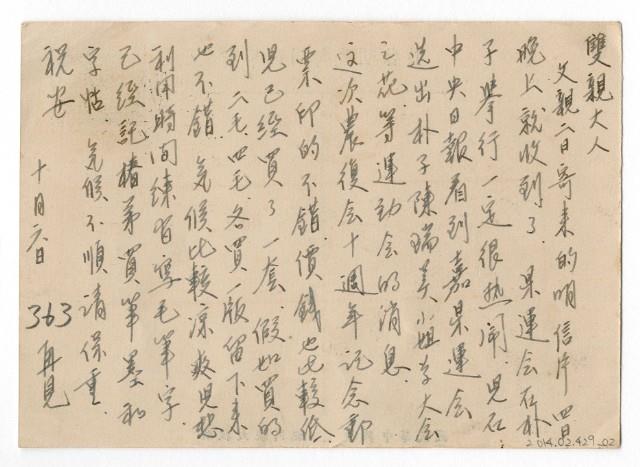 雙親大人
父親二日寄来的明信片四日
晚上就收到了.果運会在朴
子舉行一定很热闹.児在
中央日報看到嘉果運会
选出朴子陳瑞美小姐为大会
之花等運动会的消息.
这次農復会十週年記念郵
票印的不錯.價錢也比較低
児已經買了一套.假如買的
到二毛四毛各買一版留下来
也不錯.気候比較凉爽児想
利用時间練習寫毛筆字
已經託椿弟買筆墨和
字帖 気候不順请保重
祝安
十月六日 363 再見
2014.02.429_02